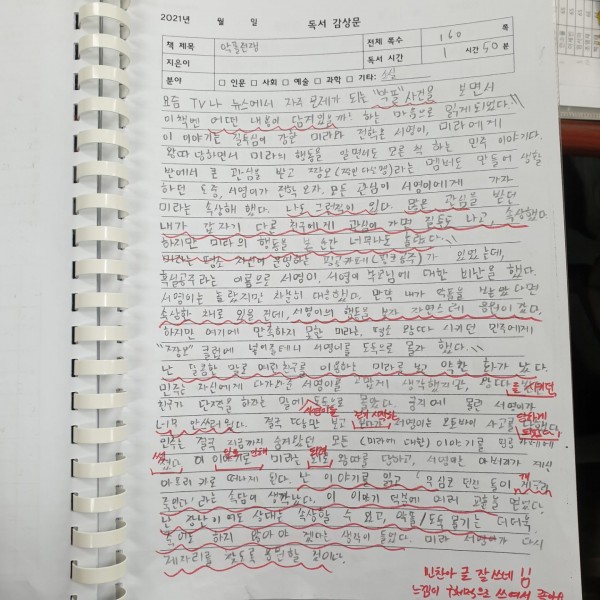 2021년 월 일 독서 감상문
책 제목 악플전쟁 전체 쪽수 160 쪽
지은이 독서 시간 1 시간 50 분
분야 □ 인문 □ 사회 □ 예술 □ 과학 □ 기타: 소설
요즘 TV나 뉴스에서 자주 문제가 되는 "악플" 사건을 보면서
이 책엔 어떤 내용이 담겨있을까? 하는 마음으로 읽게되었다.
이 이야기는 질투심이 강한 미라와 전학온 서영이, 미라에게
왕따 당하면서 미라의 행동을 알면서도 모른 척 하는 민주 이야기다.
반에서 큰 관심을 받고 짱오 멤버도 만들어 생활
하던 도중, 서영이가 전학 오자, 모든 관심이 서영이에게 가자
미라는 속상해 했다. 나도 그런적이 있다. 많은 관심을 받던
내가 갑자기 다른 친구에게 관심이 가면 질투도 나고, 속상했다
하지만 미라의 행동을 본 순간 너무나도 놀랐다.
미라는 평소 자신이 운영하는 가 있었는데,
흑설공주라는 이름으로 서영이, 서영이 부모님에 대한 비난을 했다.
서영이는 놀랐지만 차분히 대응했다. 만약 내가 악플을 받았다면
속상한 채로 있을 건데, 서영이의 행동을 보자 자연스레 응원이 갔다.
하지만 여기에 만족하지 못한 미라는, 평소 왕따 시키던 민주에게
"짱오" 클럽에 넣어준다니 서영이를 도둑으로 몰라 했다.
난 달콤한 말로 여린친구를 이용하는 미라를 보고 약한 화가 났다.
민주는 자신에게 다가와준 서영이를 고맙게 생각했지만, 왕따를 시키던
친구가 단짝을 하자는 말에 도둑으로 몰았다. 궁지에 몰린 서영이가
너무 안쓰러웠다. 결국 땅만 보고 서영이는 오토바이 사고를 당하게 되었다.
민주는 결국 지금까지 숨겨왔던 모든 (미라에 대한) 이야기를 카페에
썼다. 이 이야기로 미라는 왕따를 당하고, 서영이는
떠나게 된다. 난 이야기를 읽고 '무심코 던진 돌이 개구리
죽인다'라는 속담이 생각났다. 이 이야기 덕분에 여러 교훈을 얻었다.
난 장난이어도 상대는 속상할 수 있고, 악플/도둑 몰기는 더더욱
죽어도 하지 않아야 겠다는 생각이 들었다. 미라 서영이가 다시
제자리를 찾도록 응원할 것이다.
민찬아 글 잘쓰네!!
느낌이 구체적으로 쓰여서 좋아